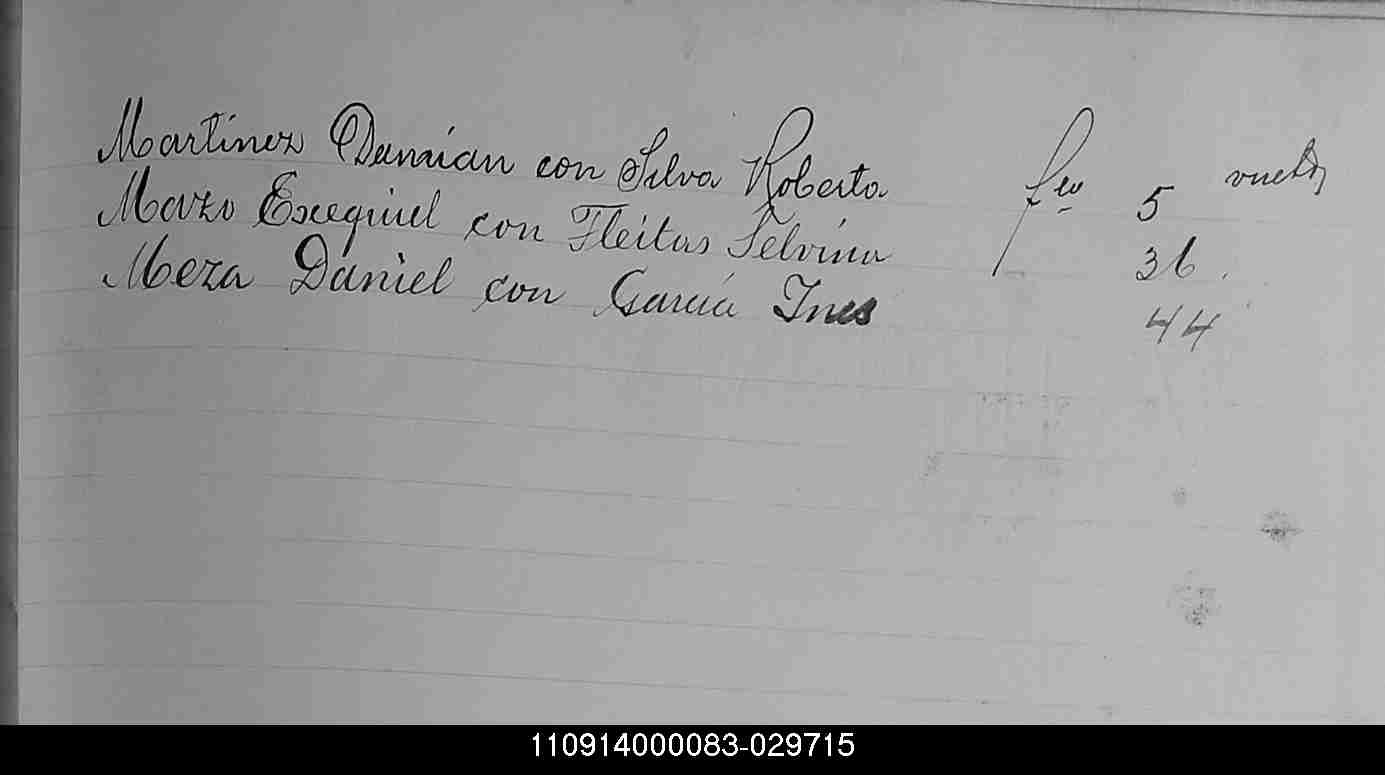 Martinez Damian con Silva Roberta fco 5 vuelta
Mazo Exequiel con Fleitas Selvina 36.
Meza Daniel con García Ines 44
110914000083-029715